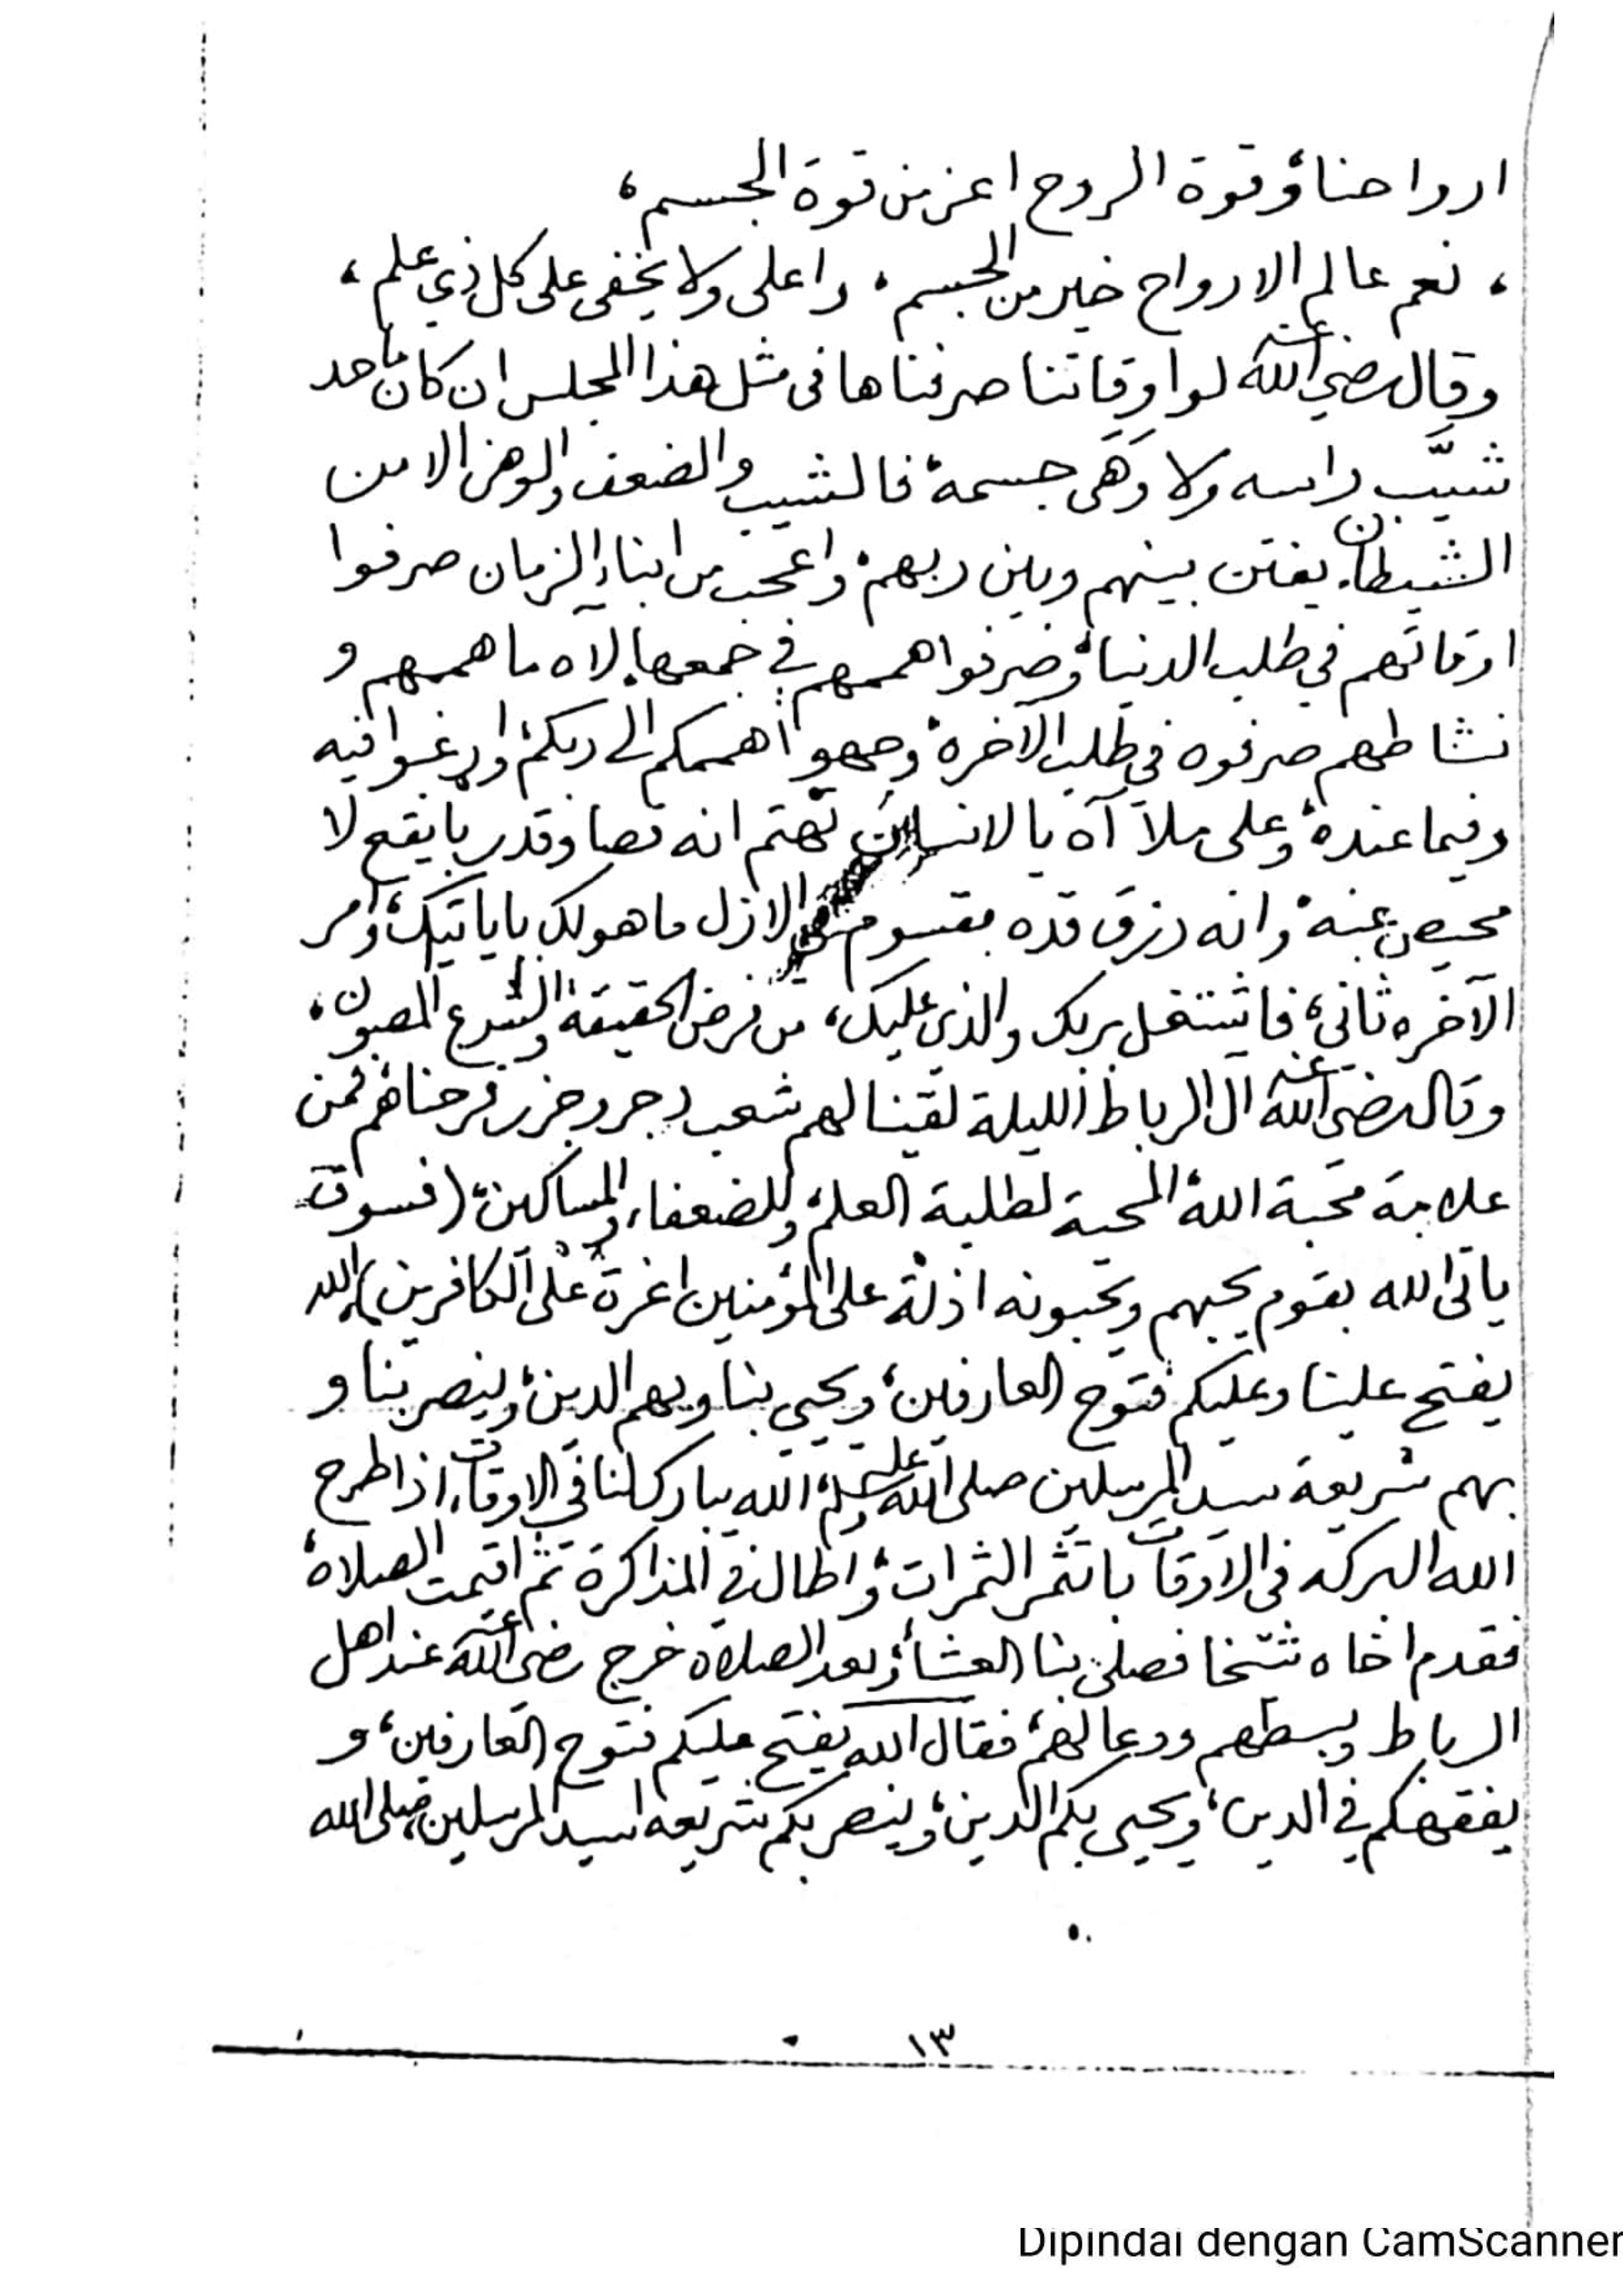 ارواحنا، وقوة الروح اعز من قوة الجسم،
، نعم عالم الارواح خير من الجسم، واعلى ولا يخفى على كل ذي علم،
وقال رضي الله عنه لو اوقاتنا صرفناها في مثل هذا المجلس ان كان ما حد
شيّب راسه ولا وَهَى جسمه، فالشيب والضعف والوهن الا من
الشيطان يفتن بينهم وبين ربهم، واعجب من ابناء الزمان صرفوا
اوقاتهم في طلب الدنيا، وصرفوا هممهم في جمعها، لاه ما هممهم و
نشاطهم صرفوه في طلب الآخرة، وجهوا هممكم الى ربكم، وارغبوا فيه
وفيما عنده، وعلى ملا آه يا الانسان تهتم انه قضا وقدر بايقع لا
محيص عنه، وانه رزق قده مقسوم في الازل ما هو لك باياتيك، وامر
الآخره ثاني، فاشتغل بربك والذي عليك، من فرض الحقيقة، والشرع المصون،
وقال رضي الله عنه ال الرباط الليلة لقينا لهم شعب وجر وجزر فرحناهم فمن
علامة محبة الله، المحبة لطلبة العلم، وللضعفاء، والمساكين، (فسوف
ياتى الله بقوم يحبهم ويحبونه اذلة على المؤمنين اعزة على الكافرين) الله
يفتح علينا وعليكم فتوح العارفين، ويحيي بنا وبهم الدين، وينصر بنا و
بهم شريعة سيد المرسلين صلى الله عليه وسلم، الله يبارك لنا في الاوقات، اذا طرح
الله البركه في الاوقات باتثمر الثمرات، واطال في المذاكرة ثم اقيمت الصلاة،
فقدم اخاه شيخا فصلى بنا العشاء، وبعد الصلاة خرج رضي الله عنه عند اهل
الرباط وبسطهم ودعا لهم، فقال الله يفتح عليكم فتوح العارفين، و
يفقهكم في الدين، ويحيي بكم الدين، وينصر بكم شريعه سيد المرسلين، صلى الله
١٣
Dipindai dengan CamScanner